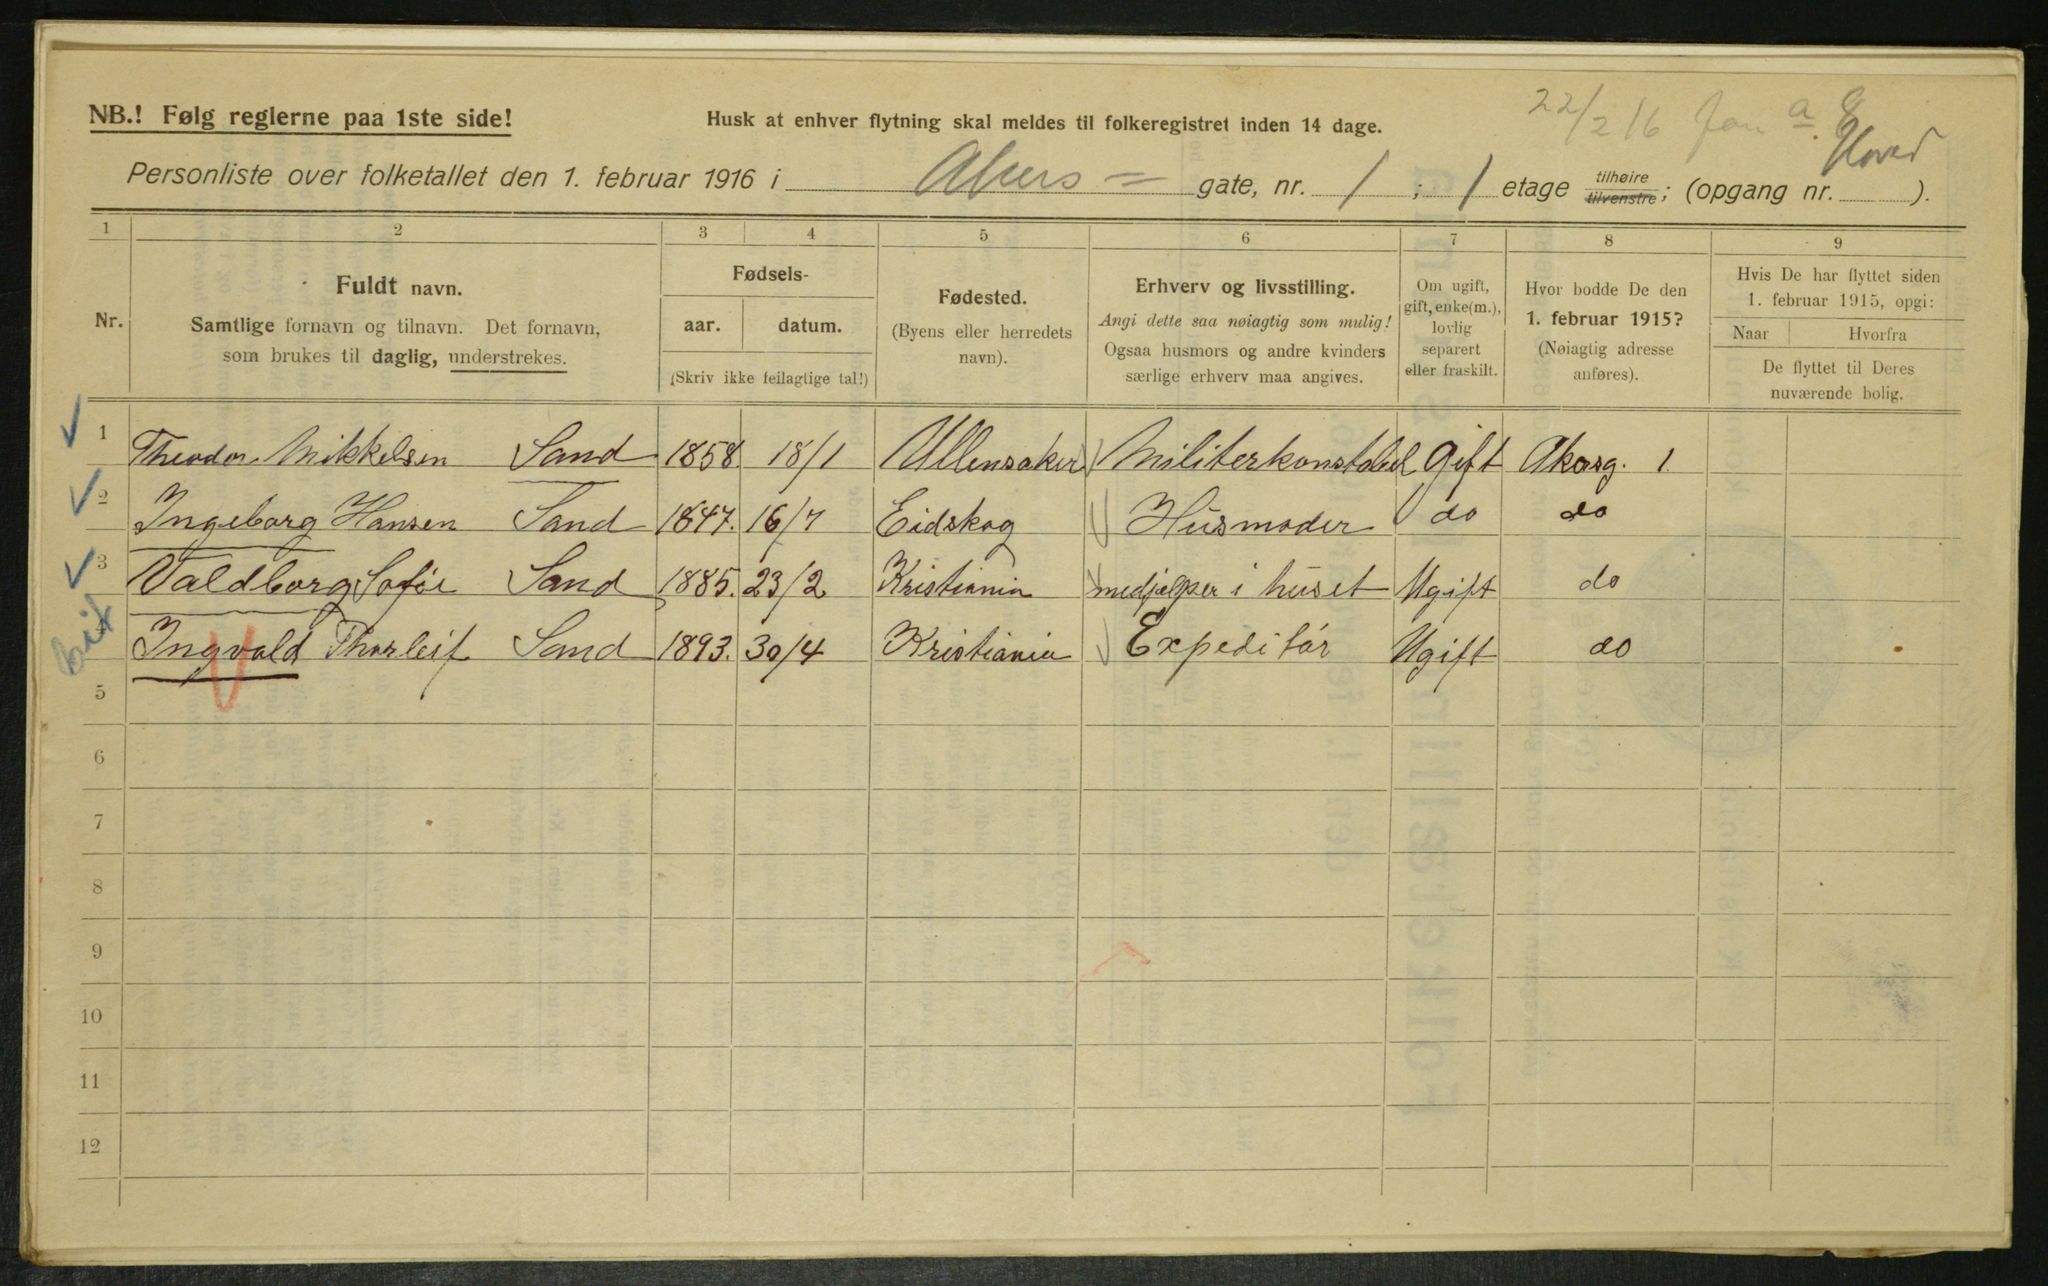 NB.! Følg reglerne paa 1ste side!
Husk at enhver flytning skal meldes til folkeregistret inden 14 dage.
22/2 16
Personliste over folketallet den 1. februar 1916 i Akers = gate, nr. 1; 1 etage tilhøire tilvenstre; (opgang nr. ).
1 2 3 4 5 6 7 8 9
Nr.
Fuldt navn.
Samtlige fornavn og tilnavn. Det fornavn,
som brukes til daglig, understrekes.
Fødsels-
aar. datum.
(Skriv ikke feilagtige tal!)
Fødested.
(Byens eller herredets
navn).
Erhverv og livsstilling.
Angi dette saa nøiagtig som mulig!
Ogsaa husmors og andre kvinders
særlige erhverv maa angives.
Om ugift,
gift, enke(m.),
lovlig
separert
eller fraskilt.
Hvor bodde De den
1. februar 1915?
(Nøiagtig adresse
anføres).
Hvis De har flyttet siden
1. februar 1915, opgi:
Naar Hvorfra
De flyttet til Deres
nuværende bolig.
1 Theodor Mikkelsen Sand 1858 18/1 Ullensaker Militerkonstabel Gift Akersg. 1.
2 Ingeborg Hansen Sand 1847. 16/7 Eidskog Husmoder do do
3 Valdborg Sofie Sand 1885. 23/2 Kristiania medjælper i huset Ugift do
Ingvald Thorleif Sand 1893. 30/4 Kristiania Expeditør Ugift do
5
6
7
8
9
10
11
12